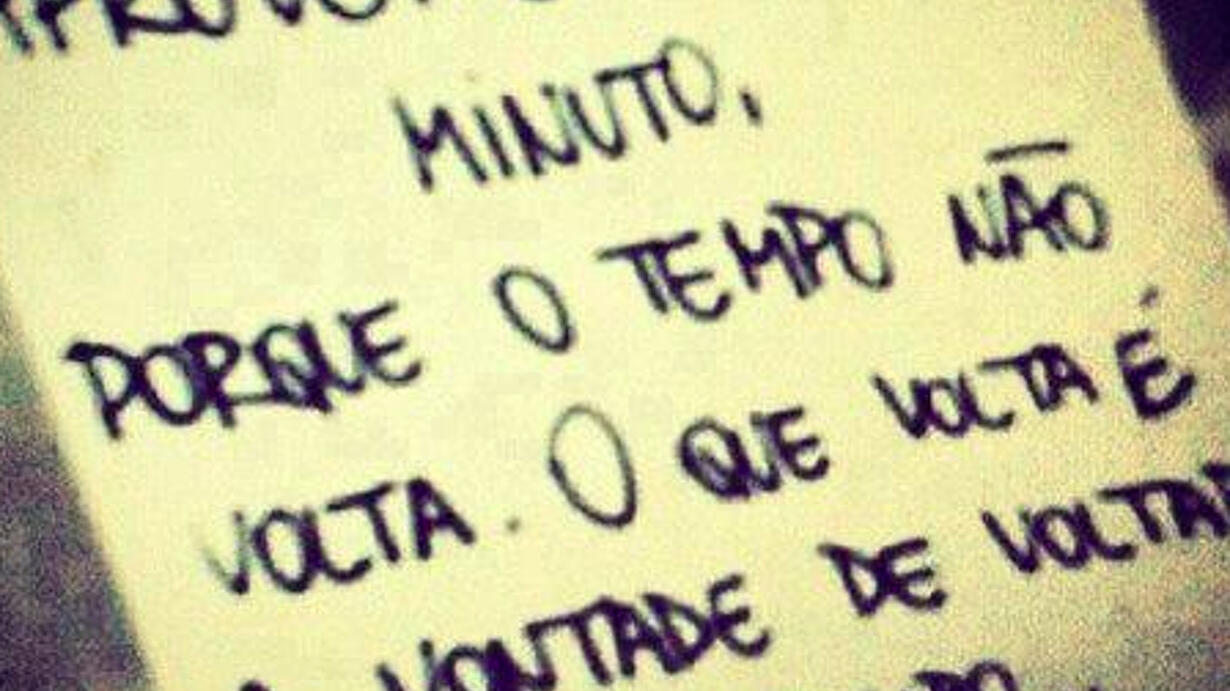 MINUTO,
PORQUE O TEMPO NÃO
VOLTA. O QUE VOLTA É
VONTADE DE VOLTAR